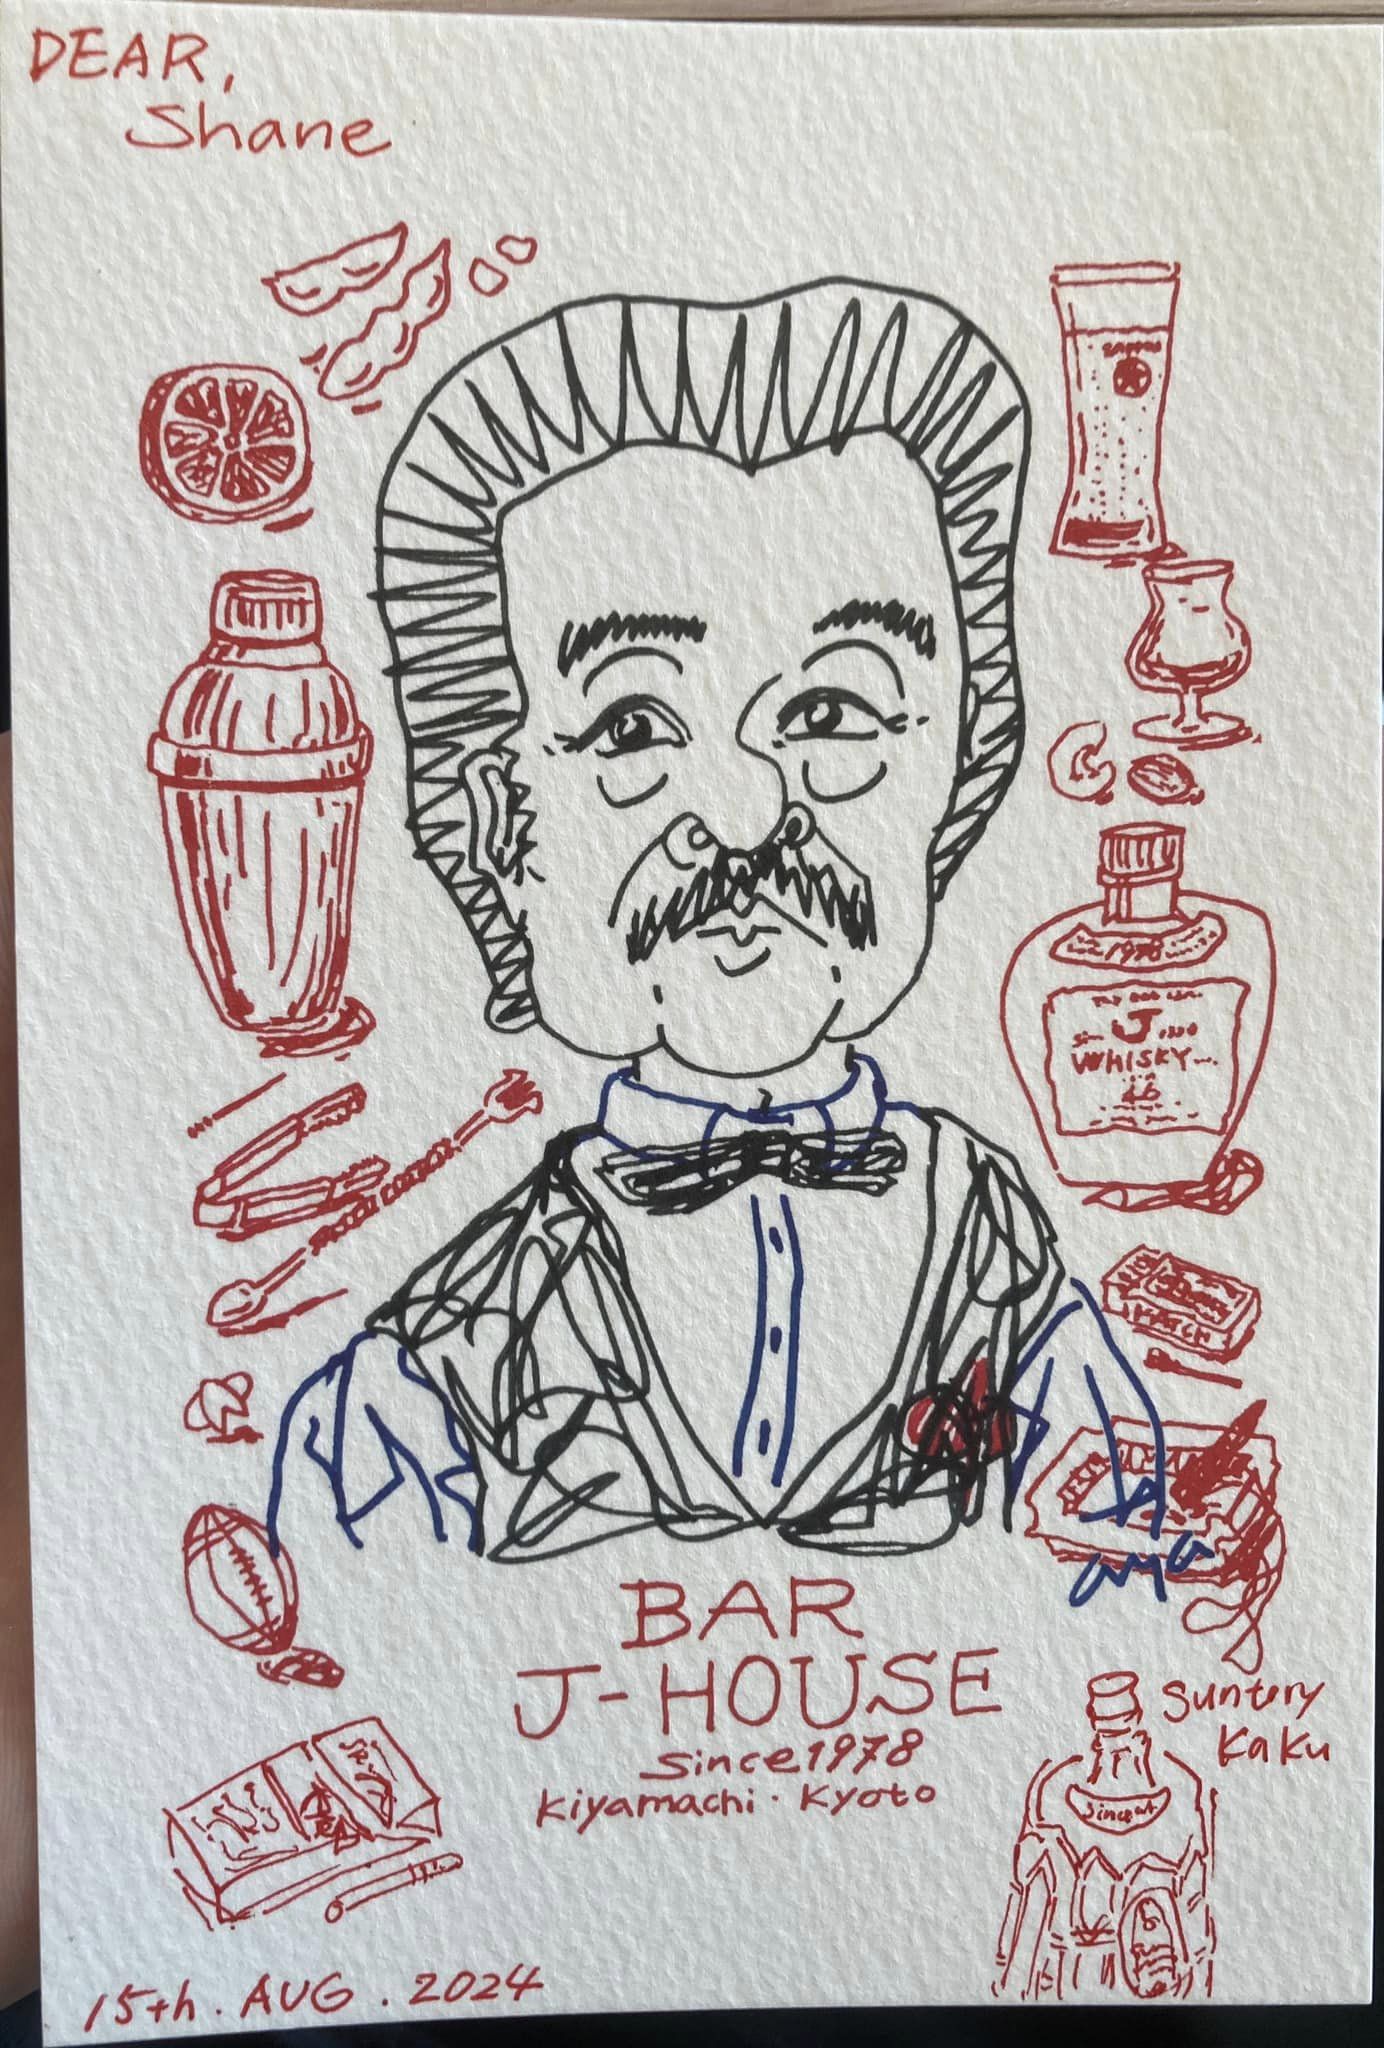 DEAR,
Shane
SAPPORO
1978
J
WHISKY
MATCH
BAR
J-HOUSE
Since 1978
Kiyamachi・Kyoto
Suntory
Kaku
15th. AUG. 2024